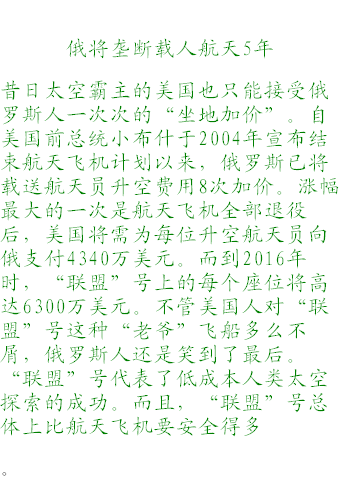 俄将垄断载人航天5年
昔日太空霸主的美国也只能接受俄
罗斯人一次次的“坐地加价”。自
美国前总统小布什于2004年宣布结
束航天飞机计划以来，俄罗斯已将
载送航天员升空费用8次加价。涨幅
最大的一次是航天飞机全部退役
后，美国将需为每位升空航天员向
俄支付4340万美元。而到2016年
时，“联盟”号上的每个座位将高
达6300万美元。不管美国人对“联
盟”号这种“老爷”飞船多么不
屑，俄罗斯人还是笑到了最后。
“联盟”号代表了低成本人类太空
探索的成功。而且，“联盟”号总
体上比航天飞机要安全得多
。